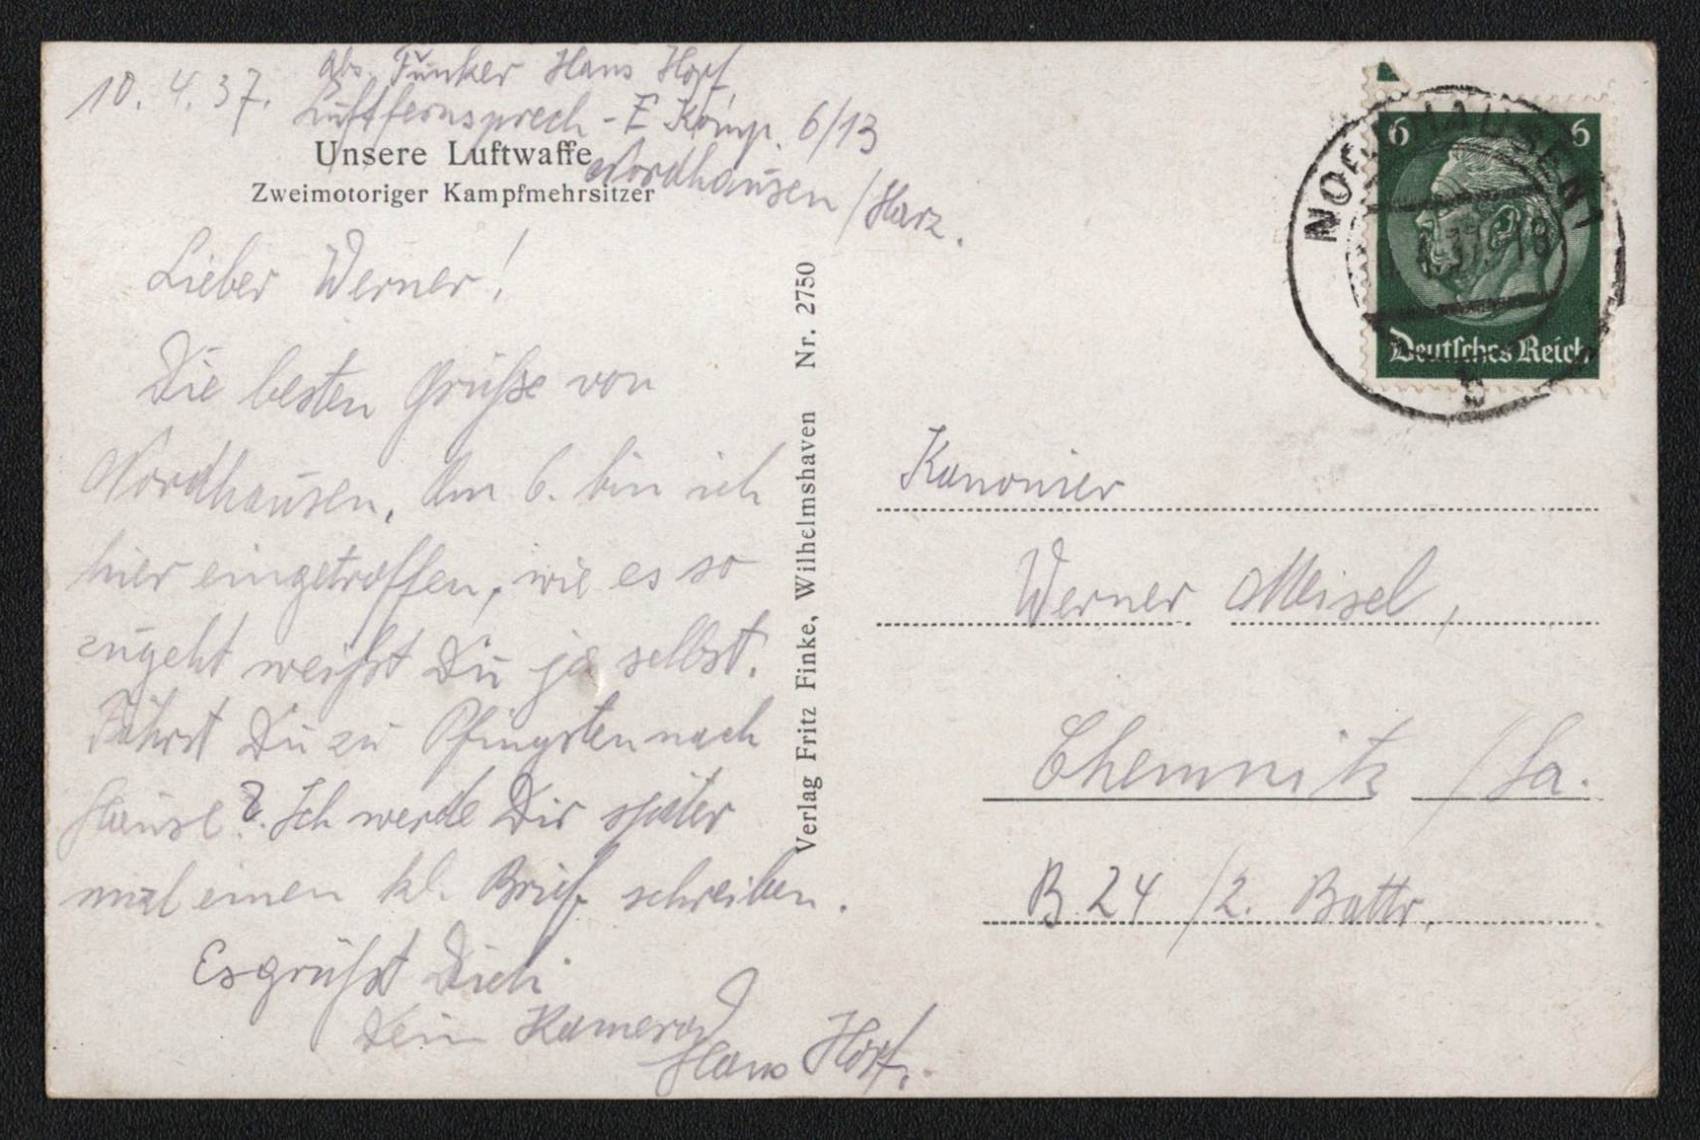 10. 4. 37.
Abs. Funker Hans Hopf,
Luftfernsprech - E Komp. 6/13
Nordhausen / Harz.
Unsere Luftwaffe
Zweimotoriger Kampfmehrsitzer
Lieber Werner!
Die besten Grüße von
Nordhausen. Am 6. bin ich
hier eingetroffen, wie es so
zugeht weißt Du ja selbst.
Fährst Du zu Pfingsten nach
Hause? Ich werde Dir später
mal einen kl. Brief schreiben.
Es grüßt Dich
Dein Kamerad
Hans Hopf.
Verlag Fritz Finke, Wilhelmshaven Nr. 2750
6 6
Deutsches Reich
NORDHAUSEN 1
Kanonier
Werner Meisel,
Chemnitz / Sa.
B. 24 / 2. Battr.